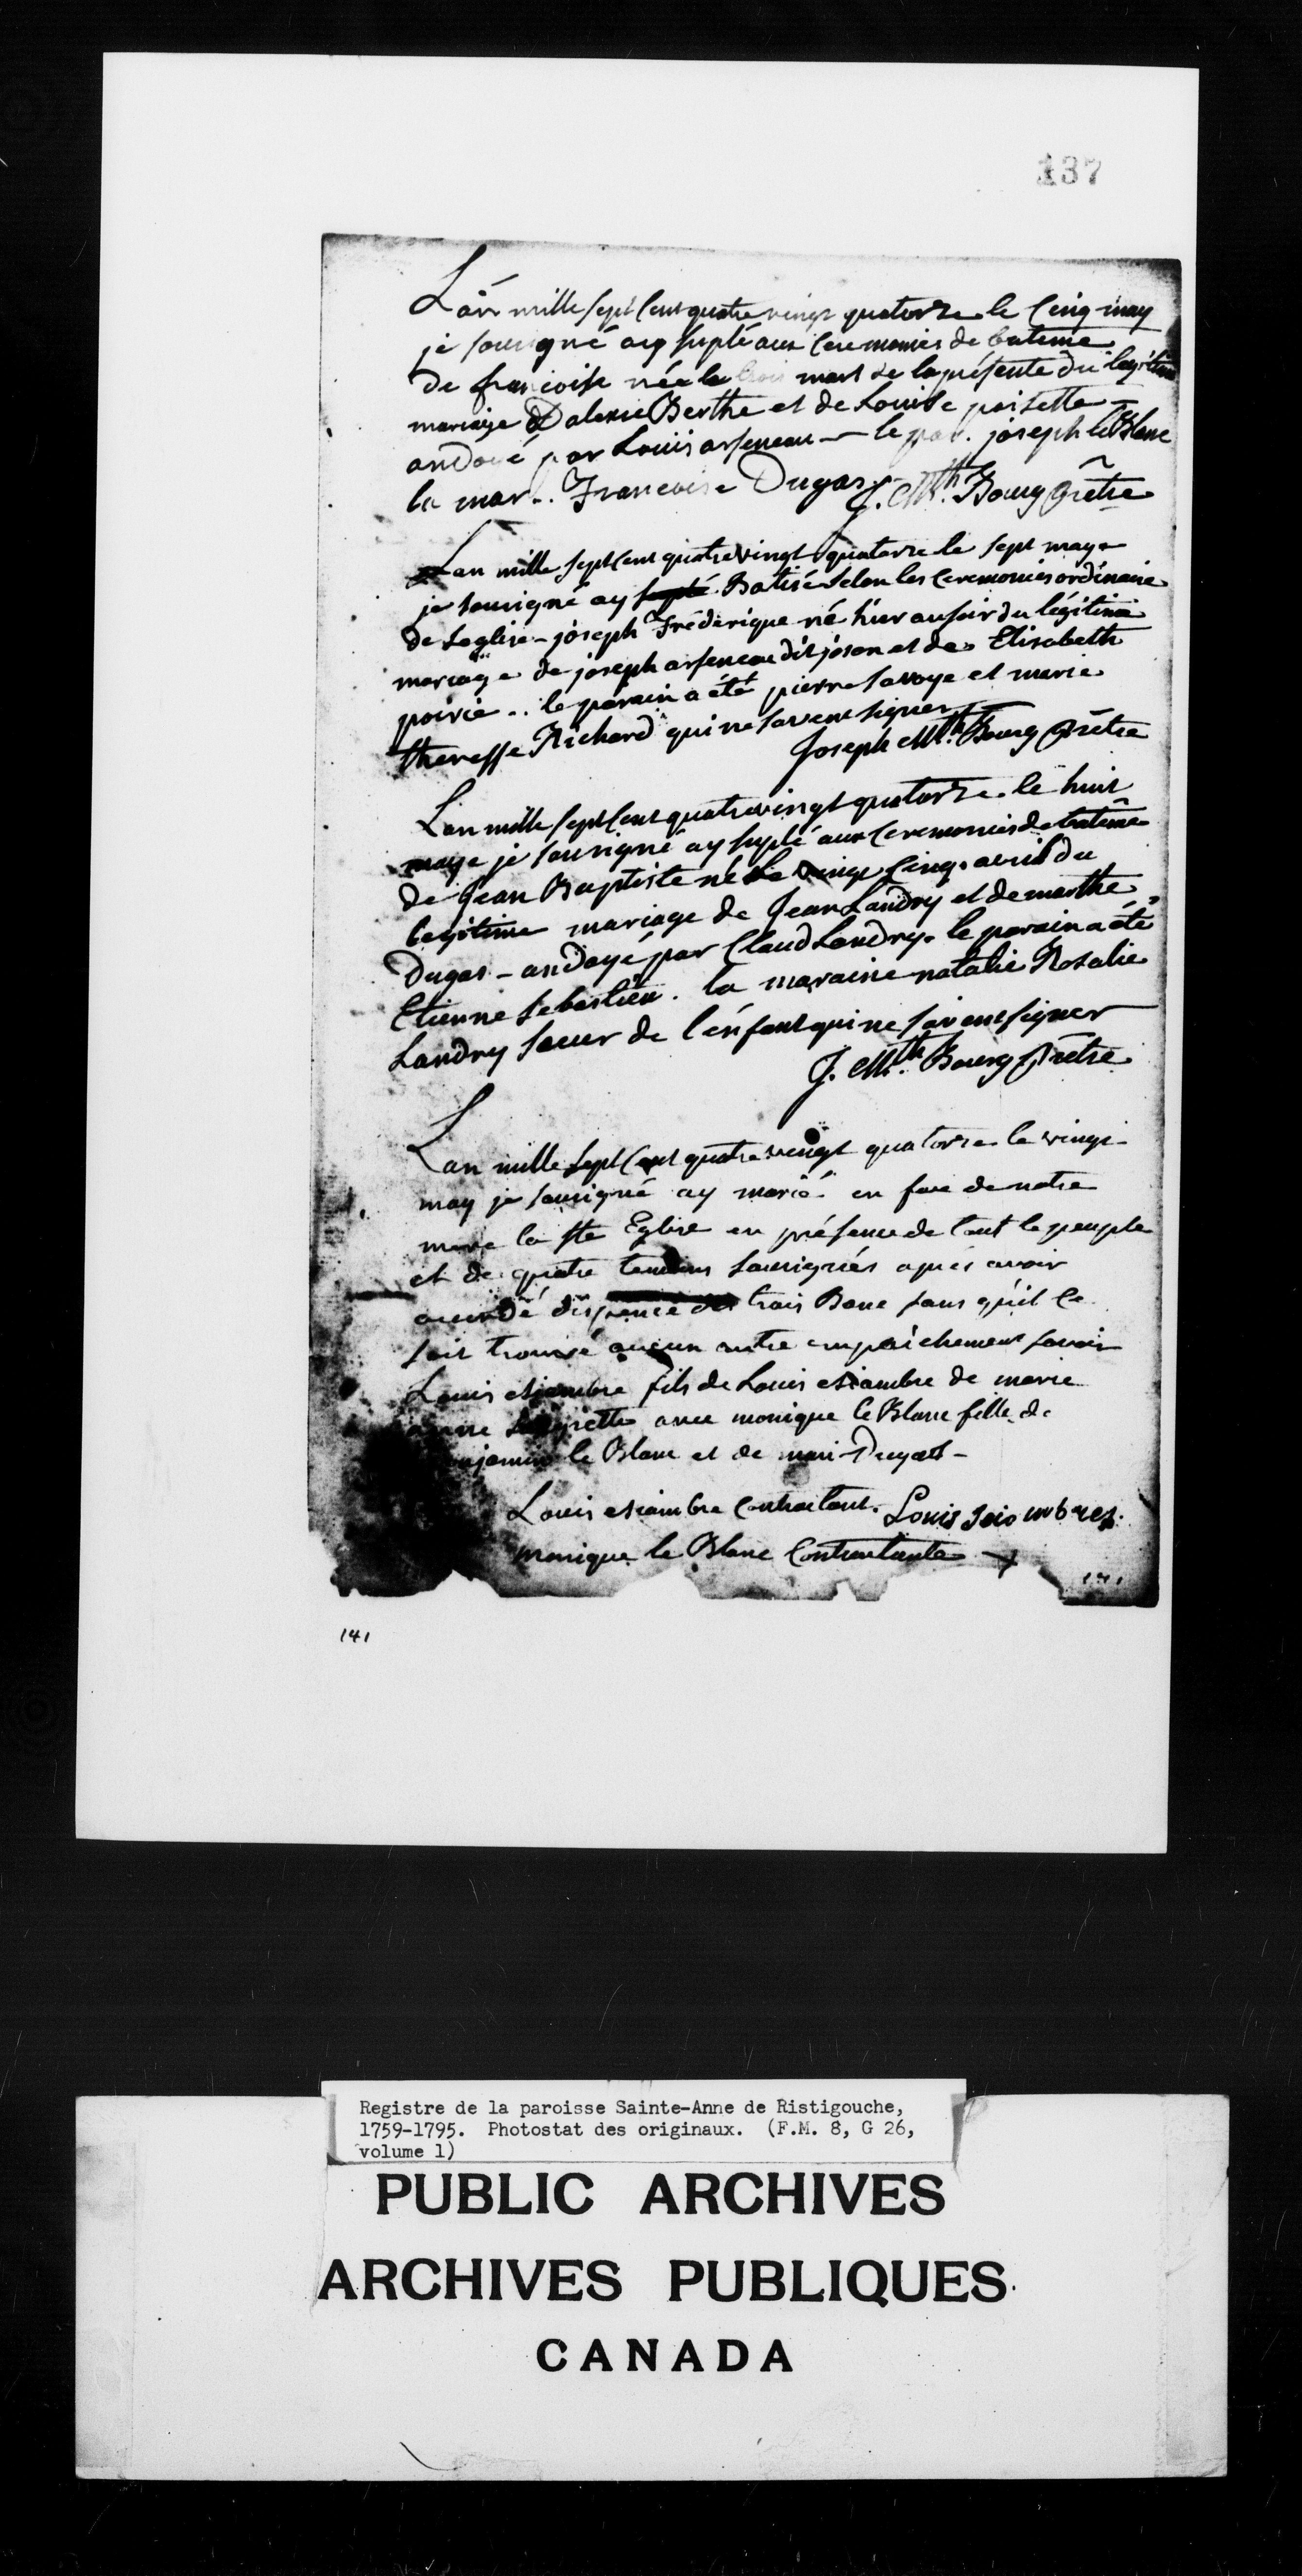 137
L'an mille sept Cent quatre vingt quatorze le Cinq may
je sousigné ay suplé aux Ceremonies de bateme
De francoise née le trois mars de la présente du legitime
mariage D'alexie Berthe et de Louise poisette
andoié par Louis arseneau — le par. joseph le Blanc
la mar.. Francoise Dugas. J. Mth. Bourg Prêtre
Lan mille sept Cent quatre vingt quatorze le sept maye
je sousigné ay suplé Batisé selon les Ceremonies ordinaire
de Leglise - joseph Fréderique né hier au soir du légitime
mariage de joseph arseneau dit joson et de Elisabeth
poirié .. le parain a été pierre savoye et marie
theresse Richard qui ne savent signer
Joseph Mth. Bourg Prêtre
Lan mille sept Cent quatre vingt quatorze le huit
maye je sousigné ay suplé aux Ceremonies de batême
de Jean Baptiste né Le vingt Cinq avril du
legitime mariage de Jean Landry et de marthe
Dugas - andayé par Claud Landry. le parain a été
Etienne Sebastien. la maraine natalie Rosalie
Landry soeur de l'énfant qui ne savent signer
J. Mth. Bourg Prêtre
Lan mille Sept Cent quatre vingt quatorze le vingt
may je sousigné ay marié en face de notre
mere la Ste Eglise en présence de tout le peuple
et de quatre temoins sousignés aprés avoir
accordé dispence de trois Banc sans qu'il ce
soit trouvé aucun autre empaichement savoir
Louis esiambre fils de Louis esiambre de marie
anne avec monique le Blanc fille de
le Blanc et de mari Dugast -
Louis esiambre Contractant. Louis Seiombres.
monique le Blanc Contractante +
141
141
Registre de la paroisse Sainte-Anne de Ristigouche,
1759-1795. Photostat des originaux. (F.M. 8, G 26,
volume 1)
PUBLIC ARCHIVES
ARCHIVES PUBLIQUES
CANADA